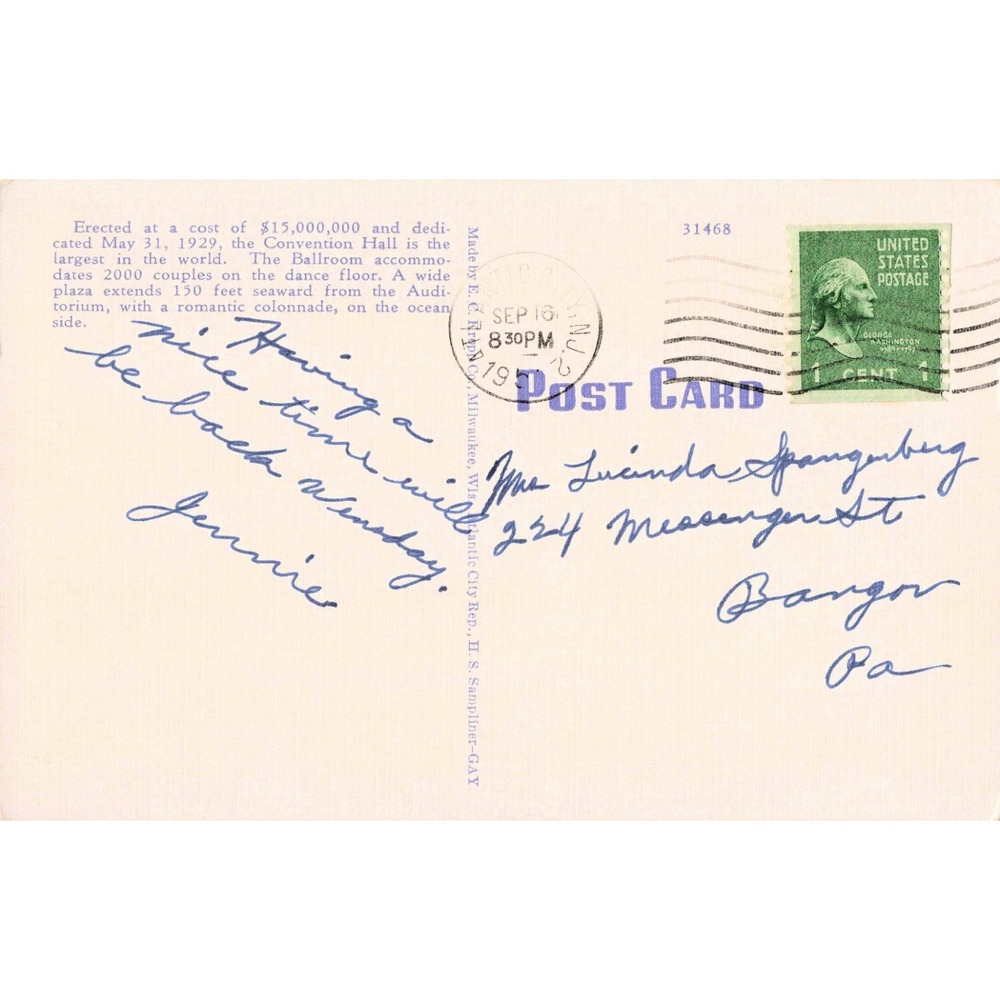 Erected at a cost of $15,000,000 and dedi-
cated May 31, 1929, the Convention Hall is the
largest in the world. The Ballroom accommo-
dates 2000 couples on the dance floor. A wide
plaza extends 150 feet seaward from the Audi-
torium, with a romantic colonnade, on the ocean
side.
Having a
nice time will
be back Wensday.
Jennie
Made by E. C. Kropp Co., Milwaukee, Wis. Atlantic City Rep., H. S. Sampliner-GAY
31468
SEP 16
8 30 PM
N.J.
2
UNITED
STATES
POSTAGE
GEORGE
WASHINGTON
1 CENT 1
POST CARD
Mrs Lucinda Spangenberg
224 Messenger St
Bangor
Pa